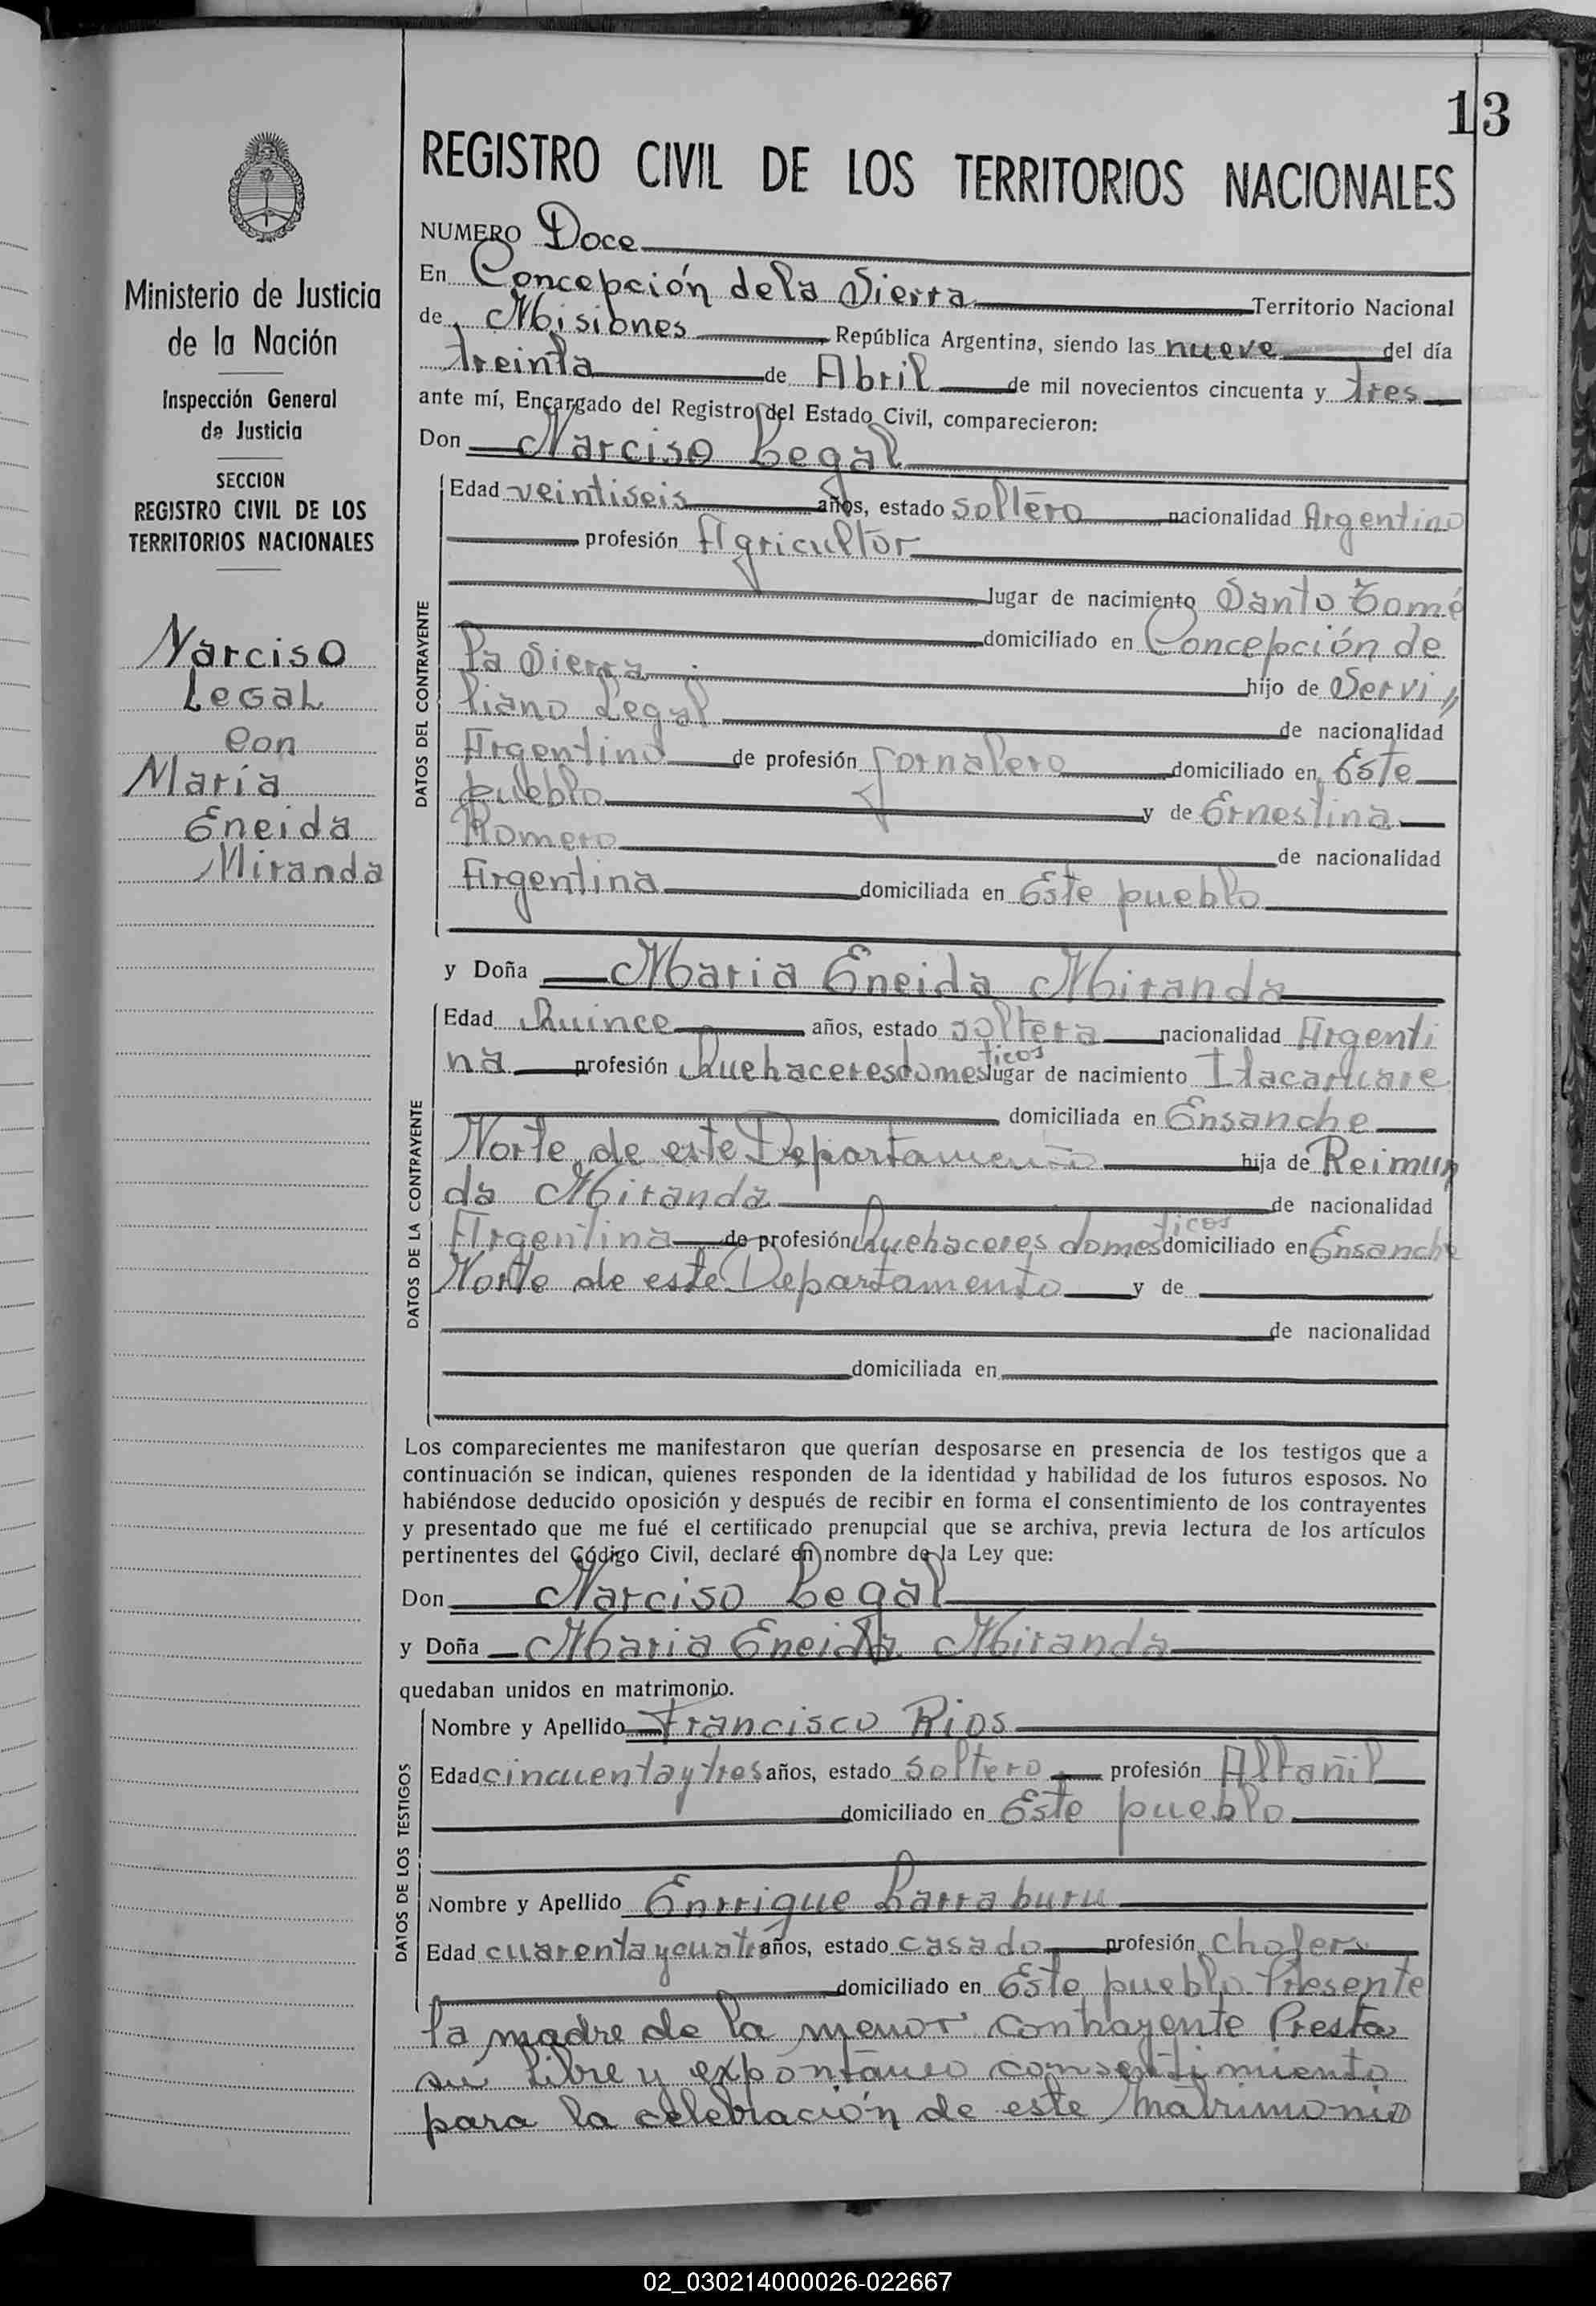 13
REGISTRO CIVIL DE LOS TERRITORIOS NACIONALES
Ministerio de Justicia
de la Nación
Inspección General
de Justicia
SECCION
REGISTRO CIVIL DE LOS
TERRITORIOS NACIONALES
Narciso
Legal
con
Maria
Eneida
Miranda
NUMERO Doce
En Concepción de la Sierra Territorio Nacional
de Misiones República Argentina, siendo las nueve del día
treinta de Abril de mil novecientos cincuenta y tres
ante mí, Encargado del Registro del Estado Civil, comparecieron:
Don Narciso Legal
DATOS DEL CONTRAYENTE
Edad veintiseis años, estado soltero nacionalidad Argentino
profesión Agricultor
lugar de nacimiento Santo Tomé
domiciliado en Concepción de
la Sierra hijo de Servi
liano Legal de nacionalidad
Argentino de profesión Jornalero domiciliado en Este
pueblo y de Ernestina
Romero de nacionalidad
Argentina domiciliada en Este pueblo
y Doña Maria Eneida Miranda
DATOS DE LA CONTRAYENTE
Edad Quince años, estado soltera nacionalidad Argenti
na profesión Quehaceres domesticos lugar de nacimiento Itacaruare
domiciliada en Ensanche
Norte de este Departamento hija de Reimun
da Miranda de nacionalidad
Argentina de profesión Quehaceres domesticos domiciliado en Ensanche
Norte de este Departamento y de
de nacionalidad
domiciliada en
Los comparecientes me manifestaron que querían desposarse en presencia de los testigos que a
continuación se indican, quienes responden de la identidad y habilidad de los futuros esposos. No
habiéndose deducido oposición y después de recibir en forma el consentimiento de los contrayentes
y presentado que me fué el certificado prenupcial que se archiva, previa lectura de los artículos
pertinentes del Código Civil, declaré en nombre de la Ley que:
Don Narciso Legal
y Doña Maria Eneida Miranda
quedaban unidos en matrimonio.
DATOS DE LOS TESTIGOS
Nombre y Apellido Francisco Rios
Edad cincuenta y tres años, estado soltero profesión Albañil
domiciliado en Este pueblo
Nombre y Apellido Enrrique Larraburu
Edad cuarenta y cuatro años, estado casado profesión Chofer
domiciliado en Este pueblo. Presente
la madre de la menor contrayente Presta
su libre y expontáneo consentimiento
para la celebración de este Matrimonio
02_030214000026-022667